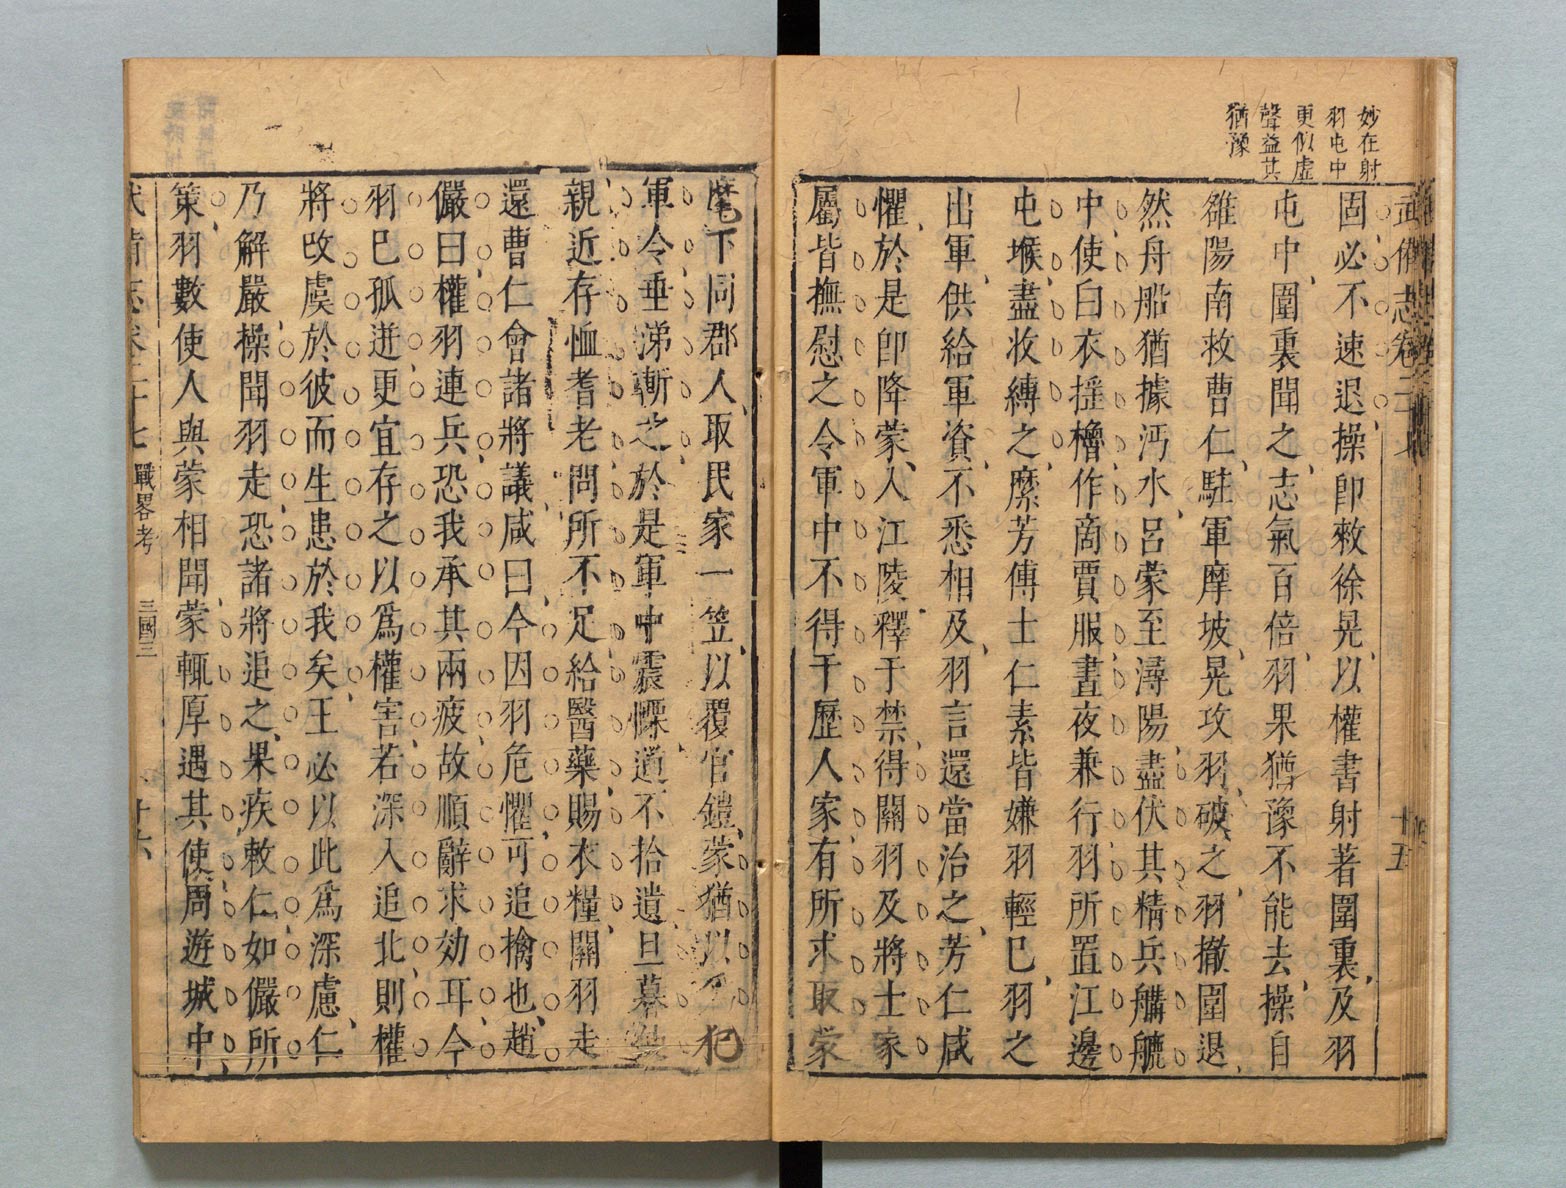 妙在射
羽屯中
更似虛
聲益其
猶豫
武備志卷二
十五
固必不速退操卽敕徐晃以權書射著圍裏及羽
屯中圍裏聞之志氣百倍羽果猶豫不能去操自
雒陽南救曹仁駐軍摩坡晃攻羽破之羽撤圍退
然舟船猶據沔水呂蒙至潯陽盡伏其精兵𦩷𦪇
中使白衣搖櫓作商賈服晝夜兼行羽所置江邊
屯堠盡收縛之糜芳傅士仁素皆嫌羽輕巳羽之
出軍供給軍資不悉相及羽言還當治之芳仁咸
懼於是卽降蒙入江陵釋于禁得關羽及將士家
屬皆撫慰之令軍中不得干歷人家有所求取蒙
麾下同郡人取民家一笠以覆官鎧蒙猶以爲犯
軍令垂涕斬之於是軍中震慄道不拾遺旦暮使
親近存恤耆老問所不足給醫藥賜衣糧關羽走
還曹仁會諸將議咸曰今因羽危懼可追擒也趙
儼曰權羽連兵恐我承其兩疲故順辭求効耳今
羽巳孤迸更宜存之以爲權害若深入追北則權
將改虞於彼而生患於我矣王必以此爲深慮仁
乃解嚴操聞羽走恐諸將追之果疾敕仁如儼所
策羽數使人與蒙相聞蒙輒厚遇其使周遊城中
武備志卷二十七
戰畧考
三國三
十六